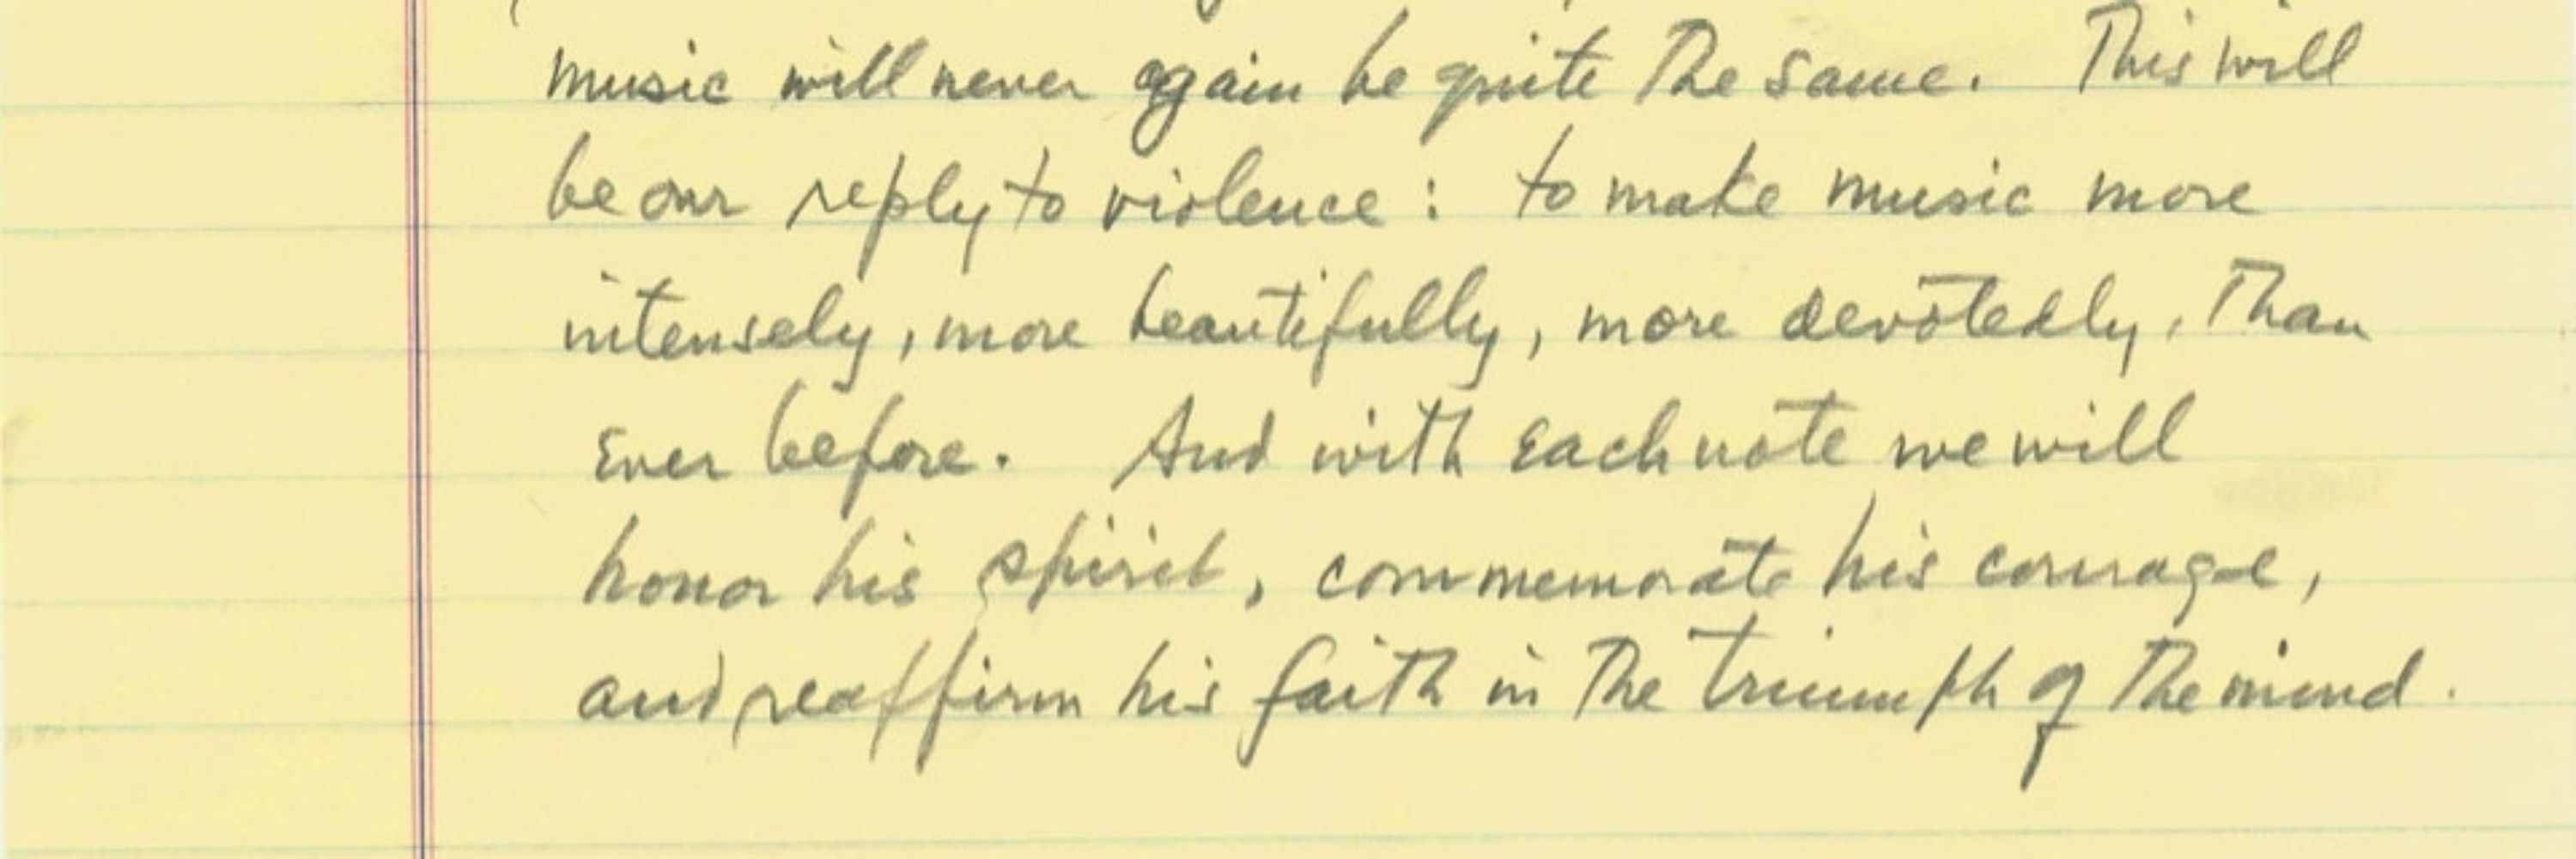 music will never again be quite the same. This will
be our reply to violence: to make music more
intensely, more beautifully, more devotedly, than
ever before. And with each note we will
honor his spirit, commemorate his courage,
and reaffirm his faith in the triumph of the mind.